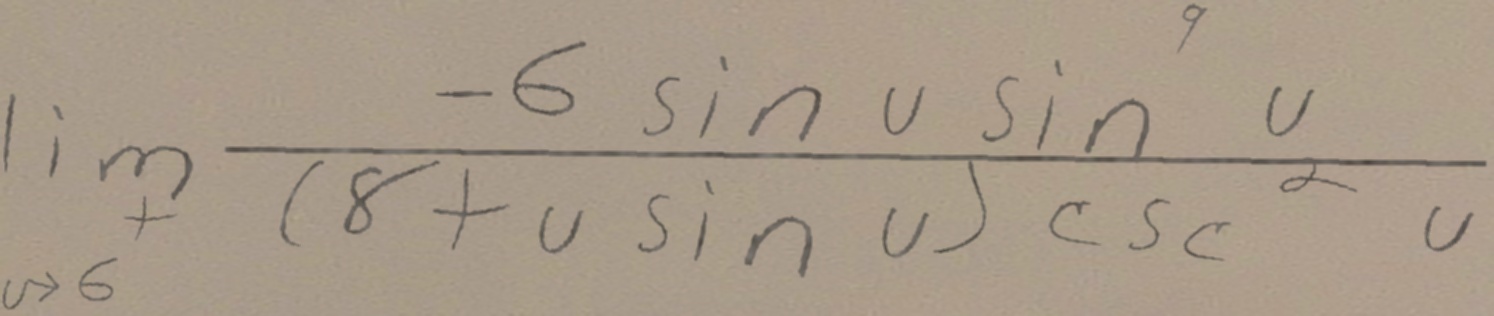 lim u→6⁺ (-6 sin u sin⁹ u) / ((8 + u sin u) csc² u)